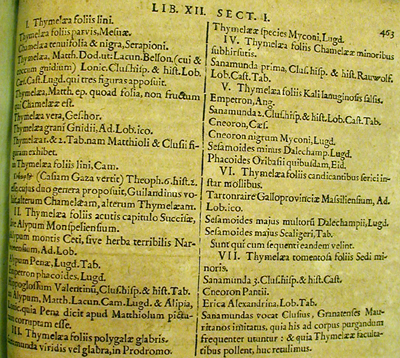 LIB. XII. SECT. I.
463
I. Thymelæa foliis lini.
Thymelæa foliis parvis. Mesuæ.
Chamelæa tenuifolia & nigra, Serapioni.
Thymelæa, Matth. Dod. ut: Lacun. Bellon. (cui &
coccum gnidium) Lonic. Clus. hisp. & hist. Lob.
Cæs. Cast. Lugd. qui tres figuras apposuit.
Thymelæa, Matth. ep. quoad folia, non fructum
qui Chamelææ est.
Thymelæa vera, Geshor.
Thymelæa grani Gnidii, Ad. Lob. ico.
Thymelæa 1. & 2. Tab. nam Matthioli & Clusii fi-
guram exhibet.
Thymelæa foliis lini, Cam.
(Casiam Gaza vertit) Theoph. 6. hist. 2.
cujus duo genera proposuit, Guilandinus vo-
alterum Chamelæam, alterum Thymelæam.
II. Thymelæa foliis acutis capitulo Succisæ,
sive Alypum Monspeliensium.
Alypum montis Ceti, sive herba terribilis Nar-
Ad. Lob.
Alypum Penæ, Lugd. Tab.
Empetron phacoides, Lugd.
Hippoglossum Valentinum, Clus. hisp. & hist. Tab.
Alypum, Matth. Lacun. Cam. Lugd. & Alipia,
quia Pena dicit apud Matthiolum pictu-
corruptam esse.
III. Thymelæa foliis polygalæ glabris.
Sanamunda viridis vel glabra, in Prodromo.
Thymelææ species Myconi, Lugd.
IV. Thymelæa foliis Chamelææ minoribus
subhirsutis.
Sanamunda prima, Clus. hisp. & hist. Rauwolf.
Lob. Cast. Tab.
V. Thymelæa foliis Kali lanuginosis salsis.
Empetron, Ang.
Sanamunda 2. Clus. hisp. & hist. Lob. Cast. Tab.
Cneoron, Cæs.
Cneoron nigrum Myconi, Lugd.
Sesamoides minus Dalechamp. Lugd.
Phacoides Oribasii quibusdam, Eid.
VI. Thymelæa foliis candicantibus serici in-
star mollibus.
Tartonraire Galloprovinciæ Massiliensium, Ad.
Lob. ico.
Sesamoides majus multorũ Dalechampii, Lugd.
Sesamoides majus Scaligeri, Tab.
Sunt qui cum sequenti eandem velint.
VII. Thymelæa tomentosa foliis Sedi mi-
noris.
Sanamunda 3. Clus. hisp. & hist. Cast.
Cneoron Pantii.
Erica Alexandrina. Lob. Tab.
Sanamundas vocat Clusius, Granatenses Mau-
ritanos imitatus, quia his ad corpus purgandum
frequenter utuntur: & quia Thymelææ facula-
tibus pollent, huc retulimus.